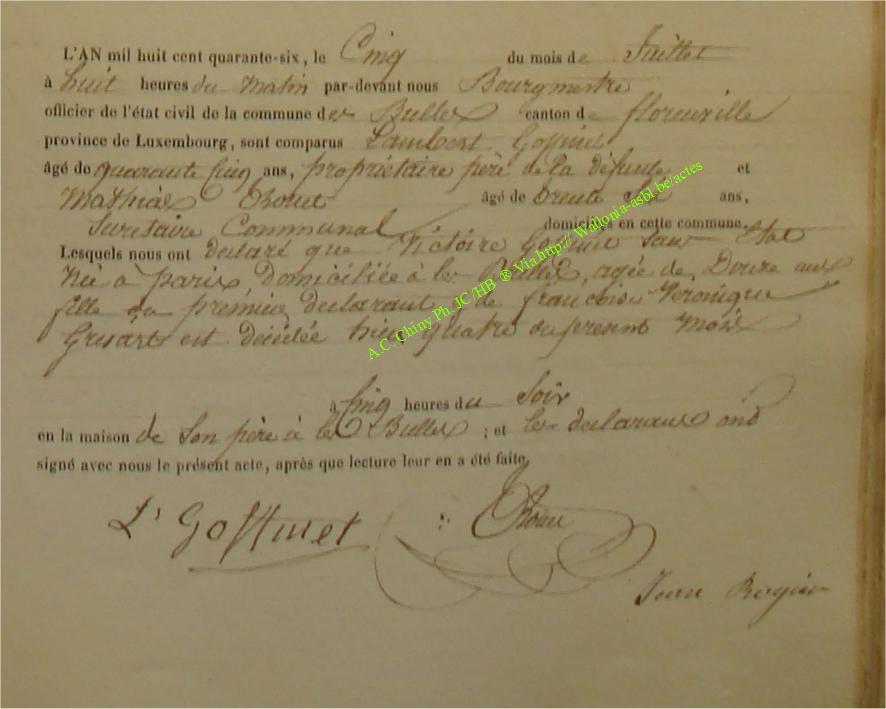 L'AN mil huit cent quarante-six, le Cinq du mois de Juillet
à huit heures du Matin par-devant nous Bourgmestre
officier de l'état civil de la commune des Bulles canton de florenville
province de Luxembourg, sont comparus Lambert Goffinet
âgé de quarante Cinq ans, propriétaire père de la défunte et
Mathias âgé de trente Six ans,
Secretaire Communal domiciliés en cette commune.
Lesquels nous ont declaré que Victoire Goffinet Sans Etat
Née à paris, Domiciliée à les Bulles, agée de Douze ans
fille du premier declarant et de françoise Veronique
est décédée hier quatre du present Mois
à Cinq heures du Soir
en la maison de Son père à les Bulles ; et les declarans ond
signé avec nous le présent acte, après que lecture leur en a été faite.
L' Goffinet
Jean
A.C. Chiny Ph. JC /HB ® Via http:// Wallonia-asbl.be/actes